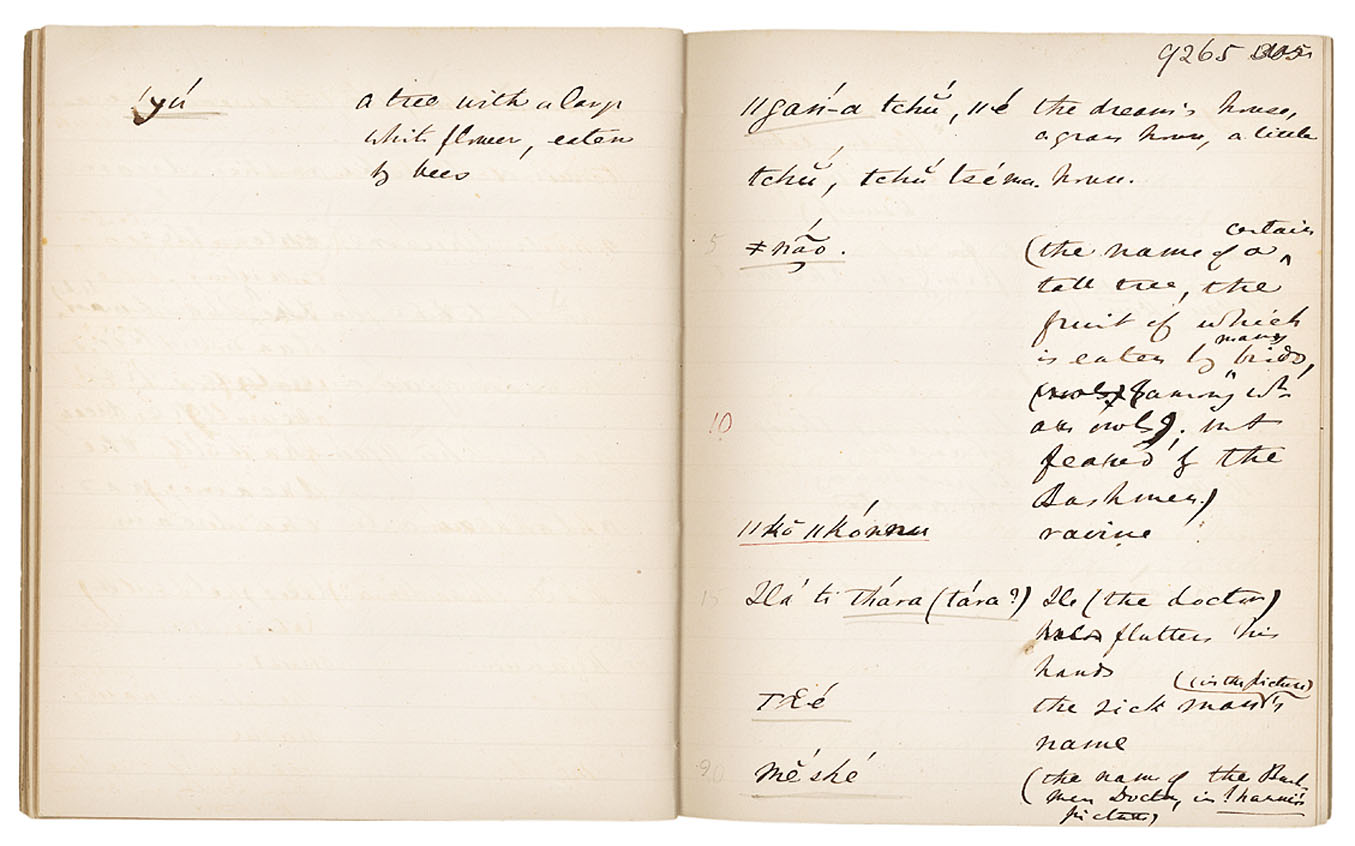 ǃyú a tree with a large
white flower, eaten
by bees
9265
ǁgań-a tchŭ́, ǁé the dream's house,
a grass house, a little
tchŭ́, tchŭ́ tzéma. house.
5 ǂnã́o. (the name of a certain
tall tree, the
fruit of which
is eaten by many birds,
(among wh.
10 are owls); but
feared by the
Bushmen.)
ǁkō ǁkónnu ravine
15 Há ti thára (tára?) He (the doctor)
flutters his
hands
the sick man's (in the picture)
name
20 Mĕ́shé (the name of the Bush-
men Doctor, in !nanni's
picture)